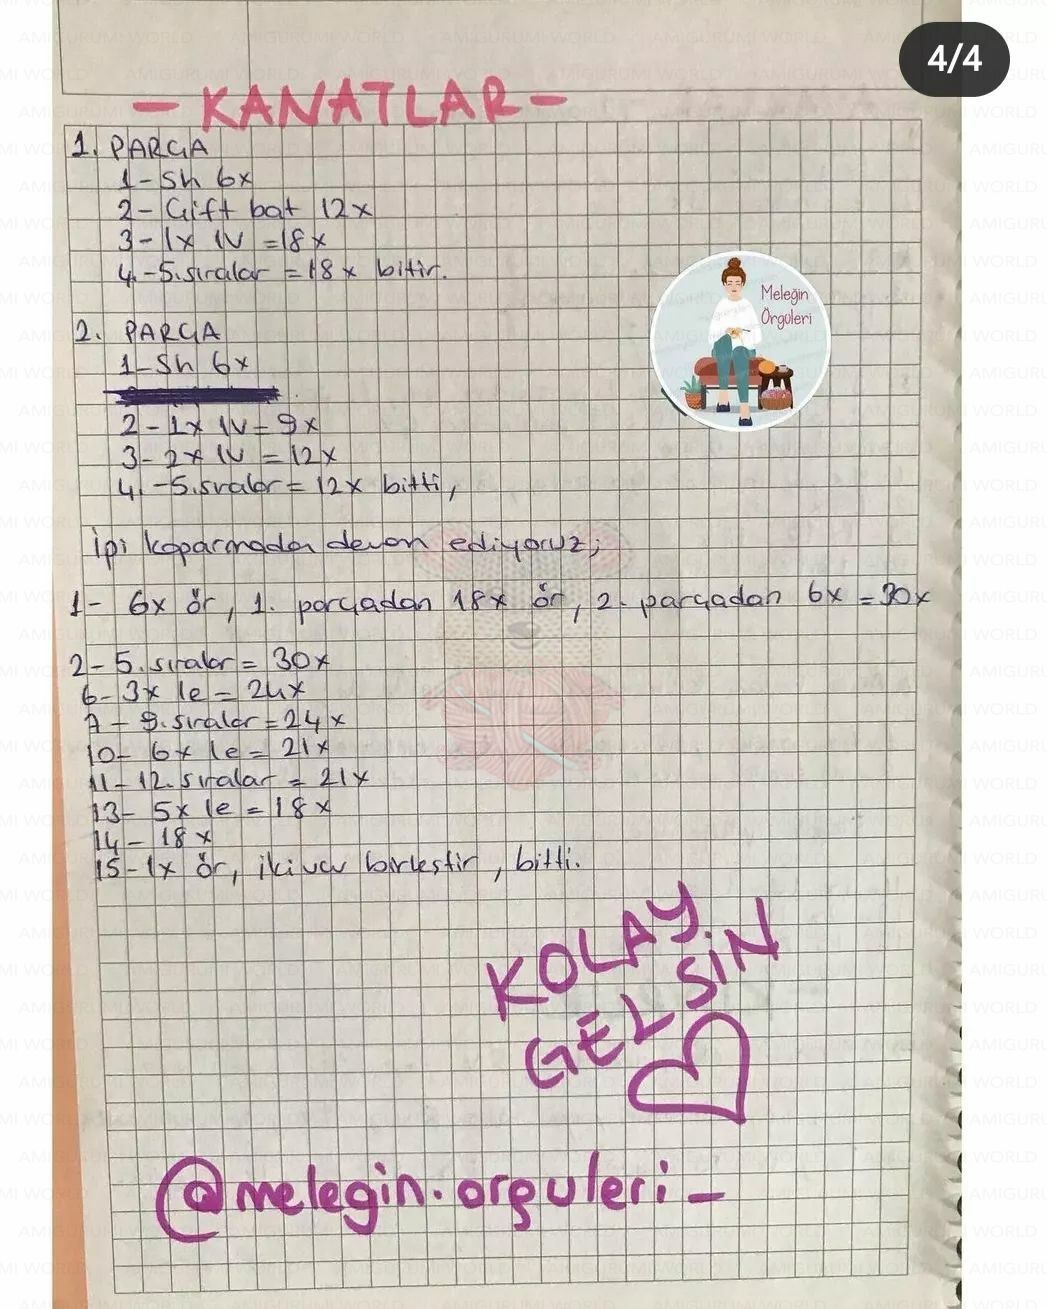 4/4
- KANATLAR -
1. PARÇA
1- Sh 6x
2- Çift bat 12x
3- 1x 1V = 18x
4.-5.sıralar = 18x bitir.
2. PARÇA
1- Sh 6x
2- 1x 1V = 9x
3- 2x 1V = 12x
4.-5.sıralar = 12x bitti,
İpi koparmadan devam ediyoruz;
1- 6x ör, 1. parçadan 18x ör, 2. parçadan 6x = 30x
2-5.sıralar = 30x
6- 3x 1e = 24x
7-9.sıralar = 24x
10- 6x 1e = 21x
11-12.sıralar = 21x
13- 5x 1e = 18x
14- 18x
15- 1x ör, iki ucu birleştir, bitti.
Meleğin
Örgüleri
KOLAY
GELSİN
@melegin.orguleri_
AMIGURUMI WORLD